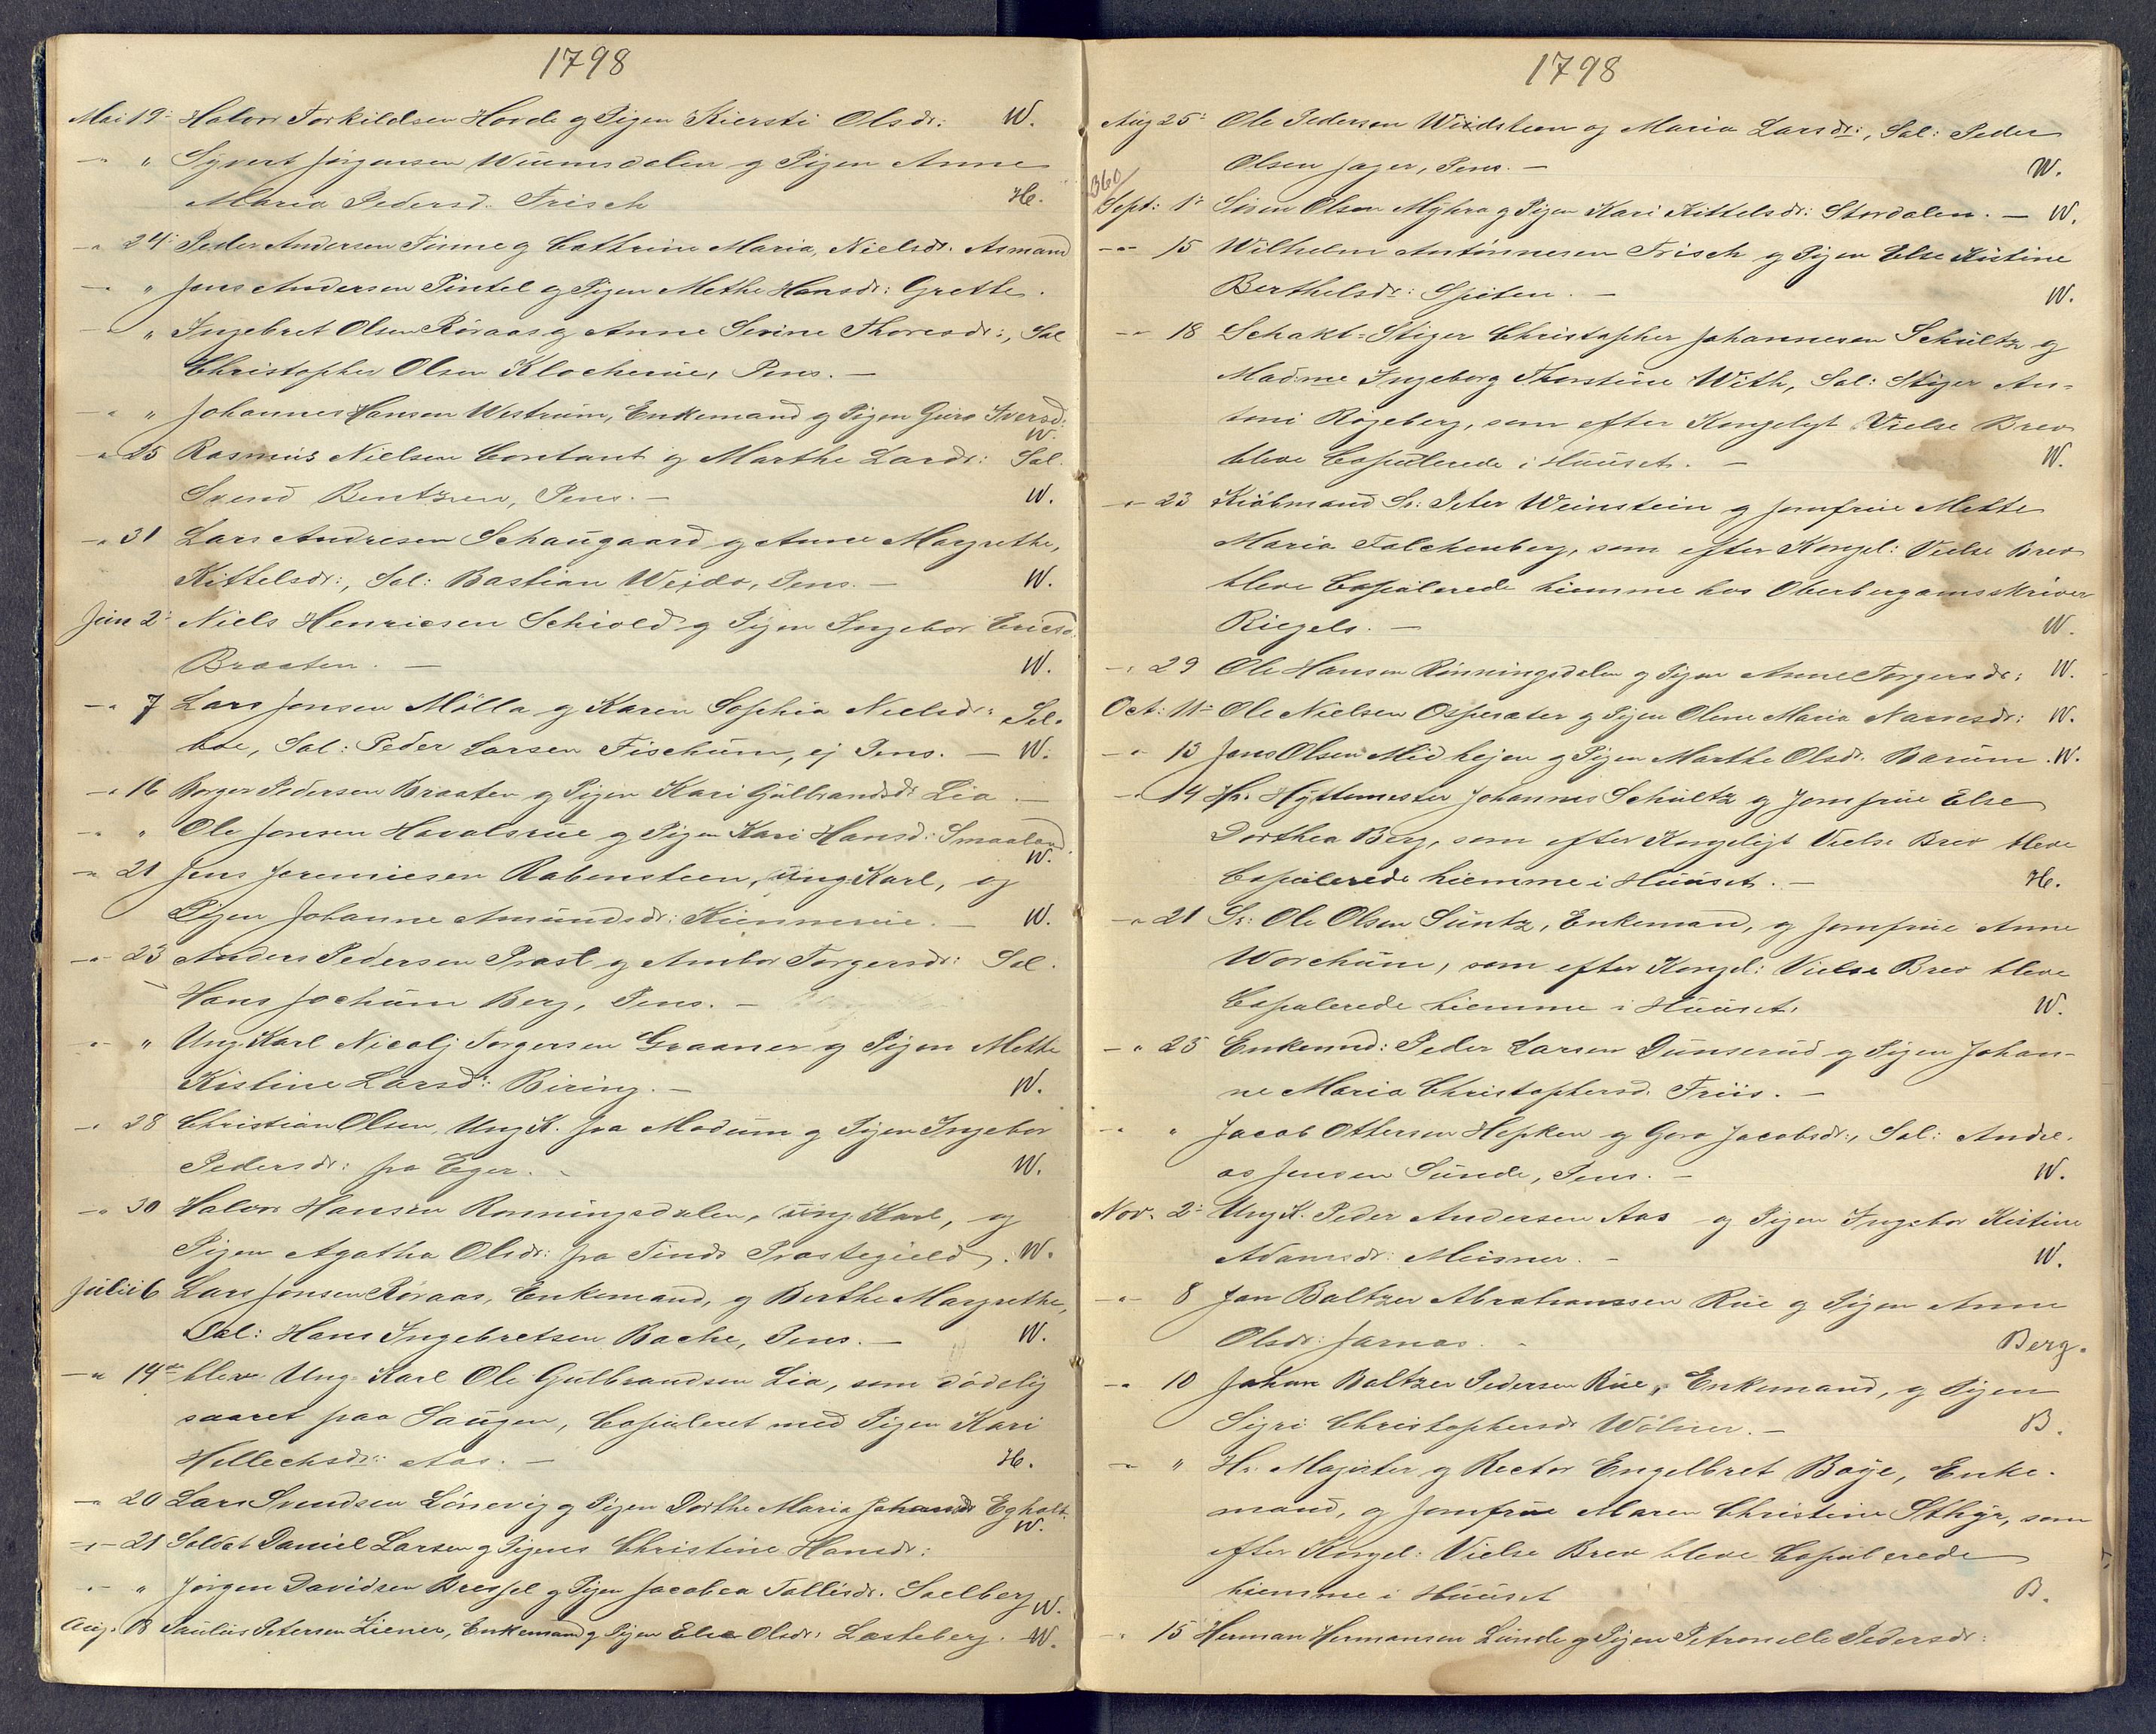 1798
Mai 19: Halvor Torkildsen Hovde og Pigen Kiersti Olsdr: W.
— " Syvert Jørgensen Wiumsdalen og Pigen Anne
Maria Pedersd. Frisch H.
— " 24: Peder Andersen Finne og Cathrine Maria, Nielsdr. Asmand
— " Jens Andersen Pintel og Pigen Methe Hansdr: Grette.
— " Ingebret Olsen Röraas og Anne Serine Thoresdr:, Sal
Christopher Olsen Klocherüe, Pens. —
— " Johannes Hansen Westrüm, Enkemand og Pigen Guro Iversd: W.
— " 25 Rasmüs Nielsen Contant og Marthe Larsdr: Sal.
Svend Bentzen, Pens. — W.
— " 31 Lars Andresen Schaügaard og Anne Margrethe,
Kittelsdr:, Sal: Bastian Weido, Pens. — W.
Jün 2: Niels Henricsen Schiold og Pigen Ingebor Ericsd:
Braaten. — W.
— " 7 Lars Jensen Mölla og Karen Sophia Nielsdr: Sel-
boe, Sal: Peder Larsen Fischüm, ej Pens. — W.
— " 16 Borger Pedersen Braaten og Pigen Kari Gülbrandsdr Lia. —
— " Ole Jonsen Havalsrüe og Pigen Kari Hansd: Smaaland. W.
— " 21 Jens Jeremiesen Rabensteen, Üng Karl, og
Pigen Johanne Amündsdr: Kiennerüe. — W.
— " 23 Anders Pedersen Prast og Ambor Torgersdr: Sal.
Hans Jochüm Berg, Pens. —
— " Ung Karl Nicolj Torgersen Graaner og Pigen Methe
Kistine Larsd: Biring. — W.
— " 28 Christian Olsen, Ung K. fra Modüm og Pigen Ingebor
Pedersdr: fra Eger. — W.
— " 30 Halvor Hansen Rönningsdalen, üng Karl, og
Pigen Agatha Olsdr: fra Tinds Prastegield. W.
Jülii 6 Lars Jonsen Röraas, Enkemand, og Berthe Margrethe,
Sal: Hans Ingebretsen Bache, Pens. — W.
— " 14de bleve Ung Karl Ole Gülbrandsen Lia, som dödelig
saaret paa Saügen, Copüleret med Pigen Kari
Hellechsdr: Aas. — H.
— " 20 Lars Svendsen Lönevig og Pigen Dorthe Maria Johansdr Egholt. W.
— " 21 Soldat Daniel Larsen og Pigen Christine Hansdr:
— " Jörgen Davidsen Bressel og Pigen Jacobea Tollisdr. Saelberg W.
Aüg. 18 Paülüs Petersen Liener, Enkemand og Pigen Else Olsdr: Lasteberg. W.
1798
Aüg 25: Ole Pedersen Windsteen og Maria Larsdr:, Sal: Peder
Olsen Jager, Pens. — W.
360
Sept: 1: Siven Olsen Myhra og Pigen Kari Kittelsdr: Stordalen. — W.
— " 15 Wilhelm Antönnesen Frisch og Pigen Else Kistine
Berthelsdr: Spiten. — W.
— " 18 Schakt-Stiger Christopher Johannesen Schültz og
Madme Ingeborg Thorstine With, Sal: Stiger An-
toni Röyeberg, som efter Kongeligt Vielse Brev
bleve Copülerede i Hüüset. — W.
— " 23 Kiöbmand Sr: Peter Weinstein og Jomfrüe Mette
Maria Falchenberg, som efter Kongel: Vielse Brev
bleve Copülerede hiemme hos Oberbergamsskriver
Riegels. — W.
— " 29 Ole Hansen Rönningsdalen og Pigen Anne Torgersdr: W.
Oct: 11: Ole Nielsen Osperater og Pigen Olene Maria Narvesdr: W.
— " 13 Jens Olsen Midhejen og Pigen Marthe Olsd: Barüm. W.
— " 14 Hr. Hyttemester Johannes Schültz og Jomfrüe Else
Dorthea Berg, som efter Kongeligt Vielse Brev bleve
Copülerede hiemme i Hüüset. — H.
— " 21 Sr: Ole Olsen Süntz, Enkeman, og Jomfrüe Anne
Worchüm, som efter Kongel: Vielse Brev bleve
Copülerede hiemme i Hüüset. W.
— " 25 Enkemd: Peder Larsen Dünserüd og Pigen Johan-
ne Maria Christophersd. Friis. —
— " Jacob Ottersen Hepken og Gora Jacobsdr:, Sal: Andre-
as Jensen Sünde, Pens. — W.
Nov. 2: Ung K. Peder Andersen Aas og Pigen Ingebor Kistine
Adamsdr: Meisner. — W.
— " 8 Jan Baltzer Abrahamssen Rüe og Pigen Anne
Olsdr: Jarnas. — Berg.
— " 10 Johan Baltzer Pedersen Rüe, Enkemand, og Pigen
Sigri Christophersdr Wölner. — B.
— " Hr. Magister og Rector Engelbret Boÿe, Enke-
mand, og Jomfrue Maren Christine Sthÿr, som
efter Kongel: Vielse Brev bleve Copülerede
hiemme i Hüüset B.
— " 15 Herman Hermansen Lünde og Pigen Petronelle Pedersdr: